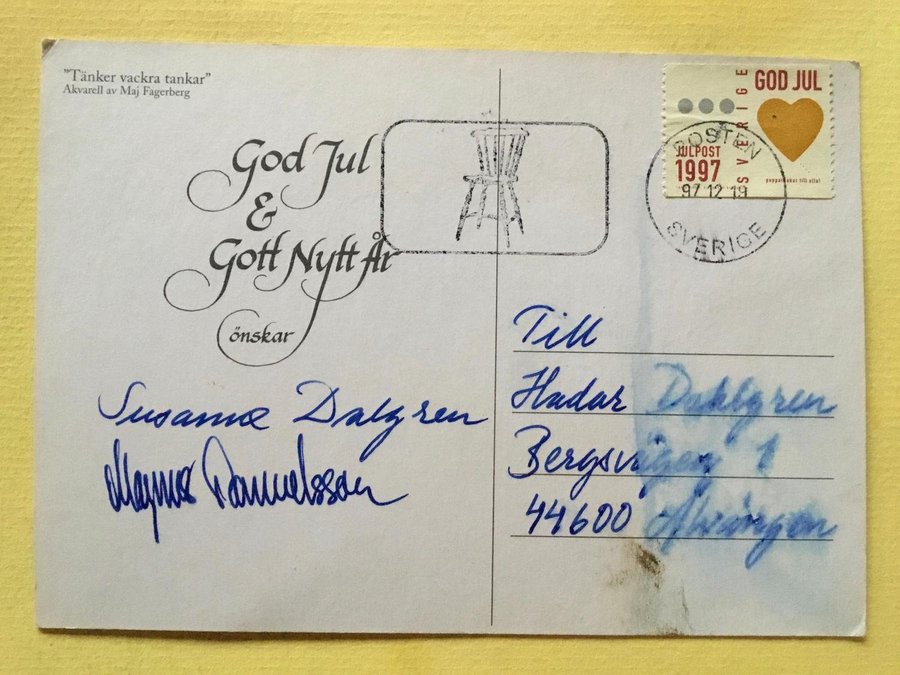 "Tänker vackra tankar"
Akvarell av Maj Fagerberg
God Jul
&
Gott Nytt År
önskar
Susanne Dalgren
Magnus Samuelsson
GOD JUL
SVERIGE
JULPOST
1997
POSTEN
97 12 19
SVERIGE
Till
Hadar Dahlgren
Bergsvägen 1
44600 Älvängen